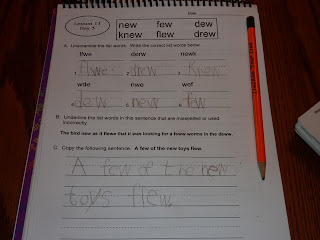 Lesson 13
Day 3
Date
new few dew
knew flew drew
A. Unscramble the list words. Write the correct list words below.
flwe derw newk
1. flwe 2. drew 3. Knew
wde nwe wef
4. dew 5. new 6. few
B. Underline the list words in this sentence that are misspelled or used
incorrectly.
The bird new as it flewe that it was looking for a feww worms in the deww.
C. Copy the following sentence. A few of the new toys flew.
A few of the new
toys flew.